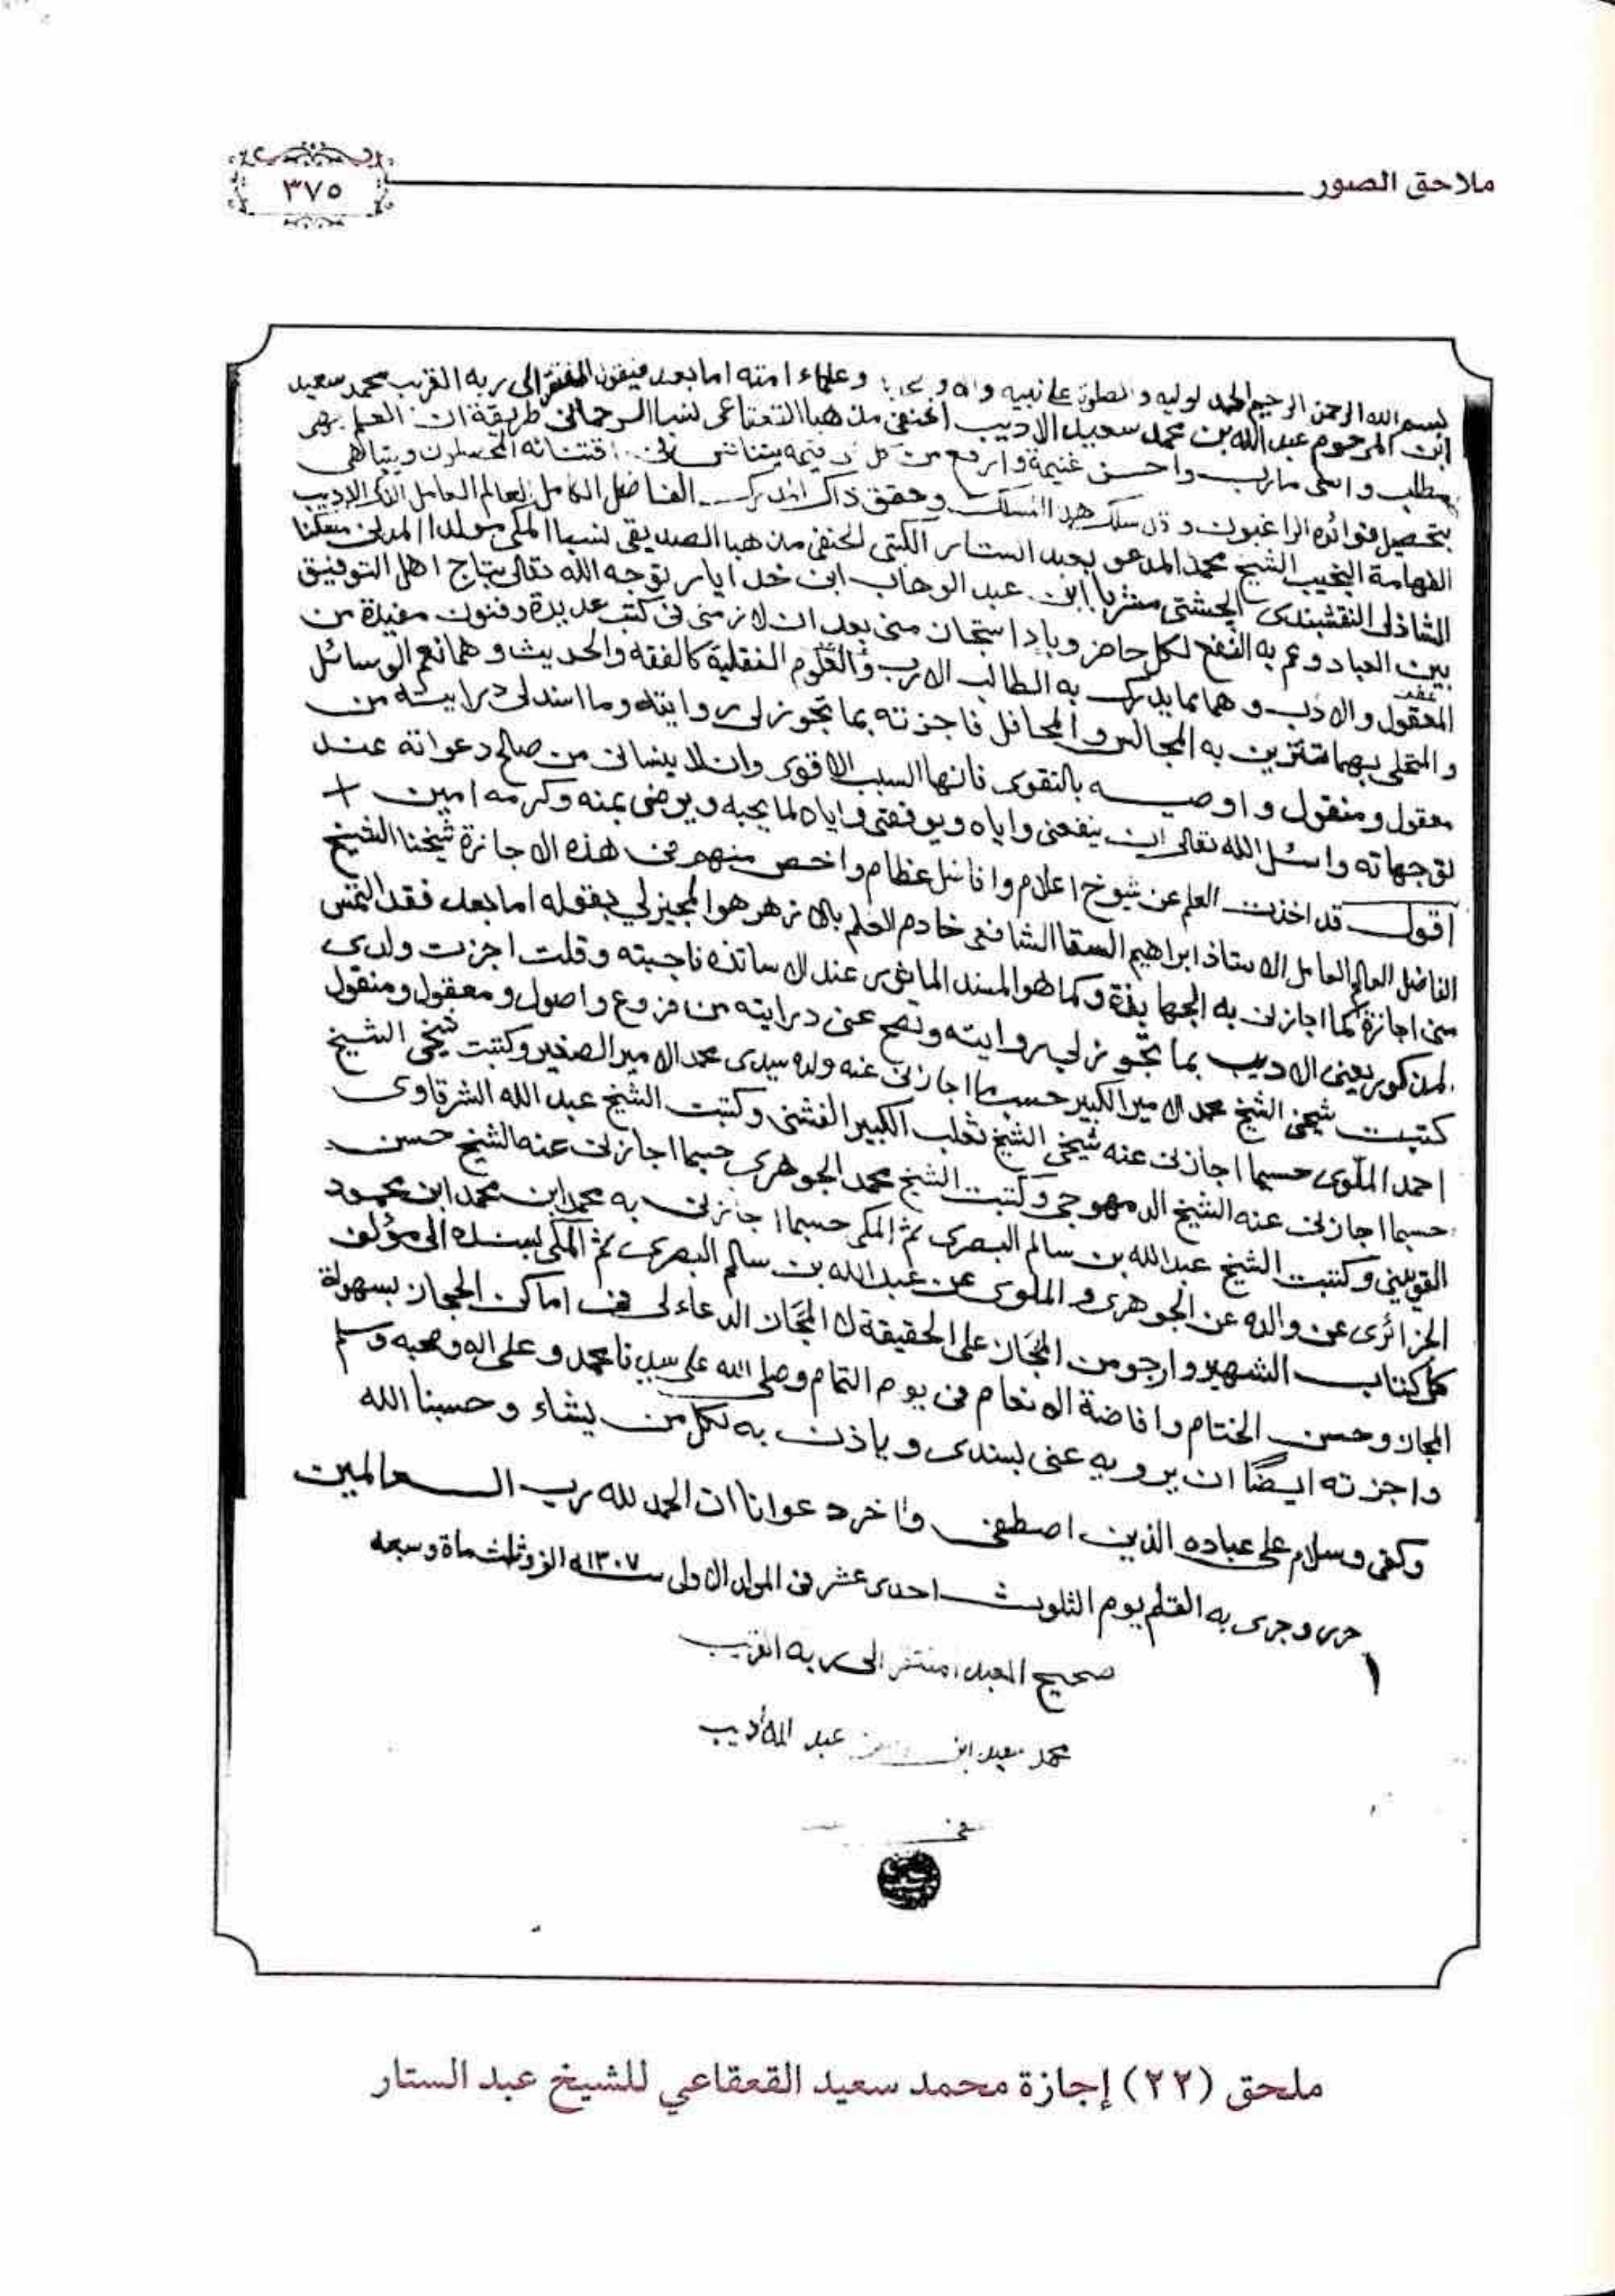 ملاحق الصور
٣٧٥
بسم الله الرحمن الرحيم الحمد لوليه والصلوة على نبيه واله و وعلماء امته اما بعد فيقول المفتقر الى ربه القريب محمد سعيد
ابن المرحوم عبد الله بن محمد سعيد الاديب الحنفي مذهبا القعقاعى نسبا الرحمانى طريقة ان العلم
مطلب واسنى مارب واحسن غنيمة وارفع من كل ذى قيمه يتنافس فى اقتنائه المحصلون ويتباهى
بتحصيل فوائده الراغبون و سلك هذا المسلك وحقق ذاك المدرك الفاضل الكامل العالم العامل الذكى الاديب
الفهامة النجيب الشيخ محمد المدعو بعبد الستار الكتبى الحنفى مذهبا الصديقى نسبا المكى مولدا المدنى مسكنا
الشاذلى النقشبندى الچشتى مشربا ابن عبد الوهاب ابن خدا يار توجه الله تعالى بتاج اهل التوفيق
بين العباد وعم به النفع لكل حاضر وباد استجاز منى بعد ان لازمنى فى كتب عديدة وفنون مفيدة من
المعقول والادب وهما مما يدرك به الطالب الارب والعلوم النقلية كالفقه والحديث وهما نعم الوسائل
والمتحلى بهما تتزين به المجالس والمحافل فاجزته بما تجوز لى روايته وما اسند لى درايته من
معقول ومنقول واوصيه بالتقوى فانها السبب الاقوى وان لا ينسانى من صالح دعواته عند
توجهاته واسئل الله تعالى ان ينفعنى واياه ويوفقنى واياه لما يحبه ويرضى بمنه وكرمه امين +
اقول قد اخذت العلم عن شيوخ اعلام وافاضل عظام واخص منهم فى هذه الاجازة شيخنا الشيخ
الفاضل العالم العامل الاستاذ ابراهيم السقا الشافعى خادم العلم بالازهر هو المجيز لي بقوله اما بعد فقد التمس
منى اجازة كما اجازنى به الجهابذة وكما هو المسند الماخوذ عند الاساتذه فاجبته وقلت اجزت ولدى
المذكور يعنى الاديب بما تجوز لي روايته وتصح عنى درايته من فروع واصول ومعقول ومنقول
كتبت شيخى الشيخ محمد الامير الكبير حسبما اجازنى عنه ولده سيدى محمد الامير الصغير وكتبت شيخى الشيخ
احمد الملّوى حسبما اجازنى عنه شيخى الشيخ ثعلب الكبير الفشنى وكتبت الشيخ عبد الله الشرقاوى
حسبما اجازنى عنه الشيخ الدمهوجى وكتبت الشيخ محمد الجوهرى حسبما اجازنى عنه الشيخ حسن
القويسنى وكتبت الشيخ عبد الله بن سالم البصرى ثم المكى حسبما اجازنى به محمد ابن محمد ابن محمود
الجزائرى عن والده عن الجوهرى والملوى عن عبد الله بن سالم البصرى ثم المكى بسنده الى مؤلف
كل كتاب الشهير وارجو من المجَاز على الحقيقة لا المجَاز الدعاء لى فى اماكن الحجاز بسهولة
المجاز وحسن الختام وافاضة الانعام فى يوم التمام وصلى الله على سيدنا محمد وعلى اله وصحبه وسلم
واجزته ايضًا ان يرويه عنى بسندى وياذن به لكل من يشاء وحسبنا الله
وكفى وسلام على عباده الذين اصطفى واخر دعوانا ان الحمد لله رب العالمين
حرر وجرى به القلم يوم الثلوث احدى عشر فى المولد الاولى سنه ١٣٠٧ه الف وثلث مأة وسبعه
صحيح العبد المفتقر الى ربه القريب
محمد سعيد ابن عبد الله أديب
ملحق (٢٢) إجازة محمد سعيد القعقاعي للشيخ عبد الستار